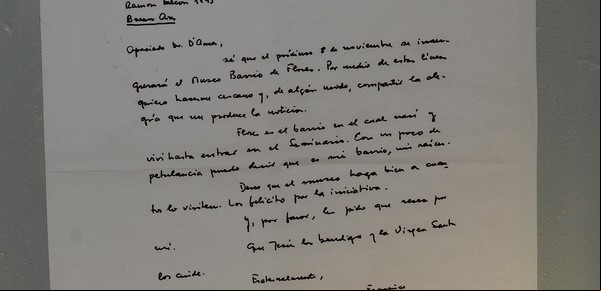 Ramón Falcón
Buenos Aires
Apreciado Dr. D'Anna,
sé que el próximo 8 de noviembre se inau-
gurará el Museo Barrio de Flores. Por medio de estas líneas
quiero hacerme cercano y, de algún modo, compartir la ale-
gría que me produce la noticia.
Flores es el barrio en el cual nací y
viví hasta entrar en el Seminario. Con un poco de
petulancia puedo decir que es mi barrio, mis raíces.
Deseo que el museo haga bien a cuan-
tos lo visiten. Los felicito por la iniciativa.
Y, por favor, le pido que recen por
mí. Que Jesús los bendiga y la Virgen Santa
los cuide. Fraternalmente,
Francisco